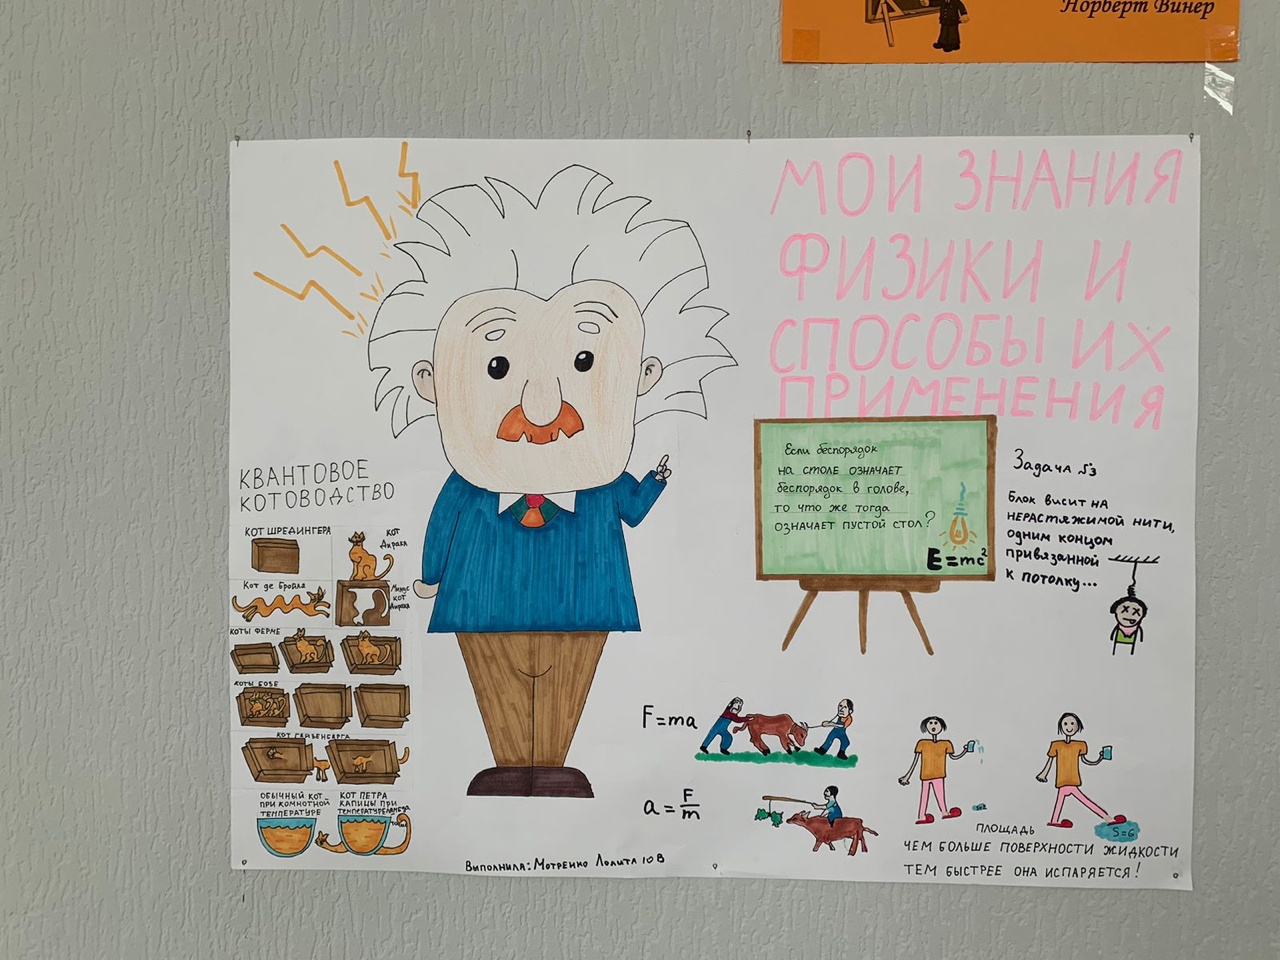 Норберт Винер
МОИ ЗНАНИЯ
ФИЗИКИ И
СПОСОБЫ ИХ
ПРИМЕНЕНИЯ
КВАНТОВОЕ
КОТОВОДСТВО
КОТ ШРЕДИНГЕРА
КОТ
Дирака
Кот де Бройля
Минус
КОТ
Дирака
КОТЫ ФЕРМЕ
КОТЫ БОЗЕ
КОТ ГЕЙЗЕНБЕРГА
ОБЫЧНЫЙ КОТ
ПРИ КОМНОТНОЙ
ТЕМПЕРАТУРЕ
КОТ ПЕТРА
КАПИЦЫ ПРИ
Если беспорядок
на столе означает
беспорядок в голове,
то что же тогда
означает пустой стол?
E=mc²
Задача №3
Блок висит на
нерастяжимой нити,
одним концом
привязанной
к потолку...
F=ma
a=F/m
S=6
ПЛОЩАДЬ
ЧЕМ БОЛЬШЕ ПОВЕРХНОСТИ ЖИДКОСТИ
ТЕМ БЫСТРЕЕ ОНА ИСПАРЯЕТСЯ!
Выполнила: Мотренко Лолита 10В